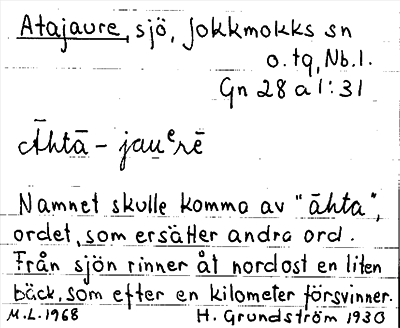 Atajaure, sjö, Jokkmokks sn
o. tq, Nb.l.
Gn 28 a 1:31
Āhtā - jauᵉrē
Namnet skulle komma av "āhta",
ordet, som ersätter andra ord.
Från sjön rinner åt nordost en liten
bäck, som efter en kilometer försvinner.
M.L. 1968 H. Grundström 1930